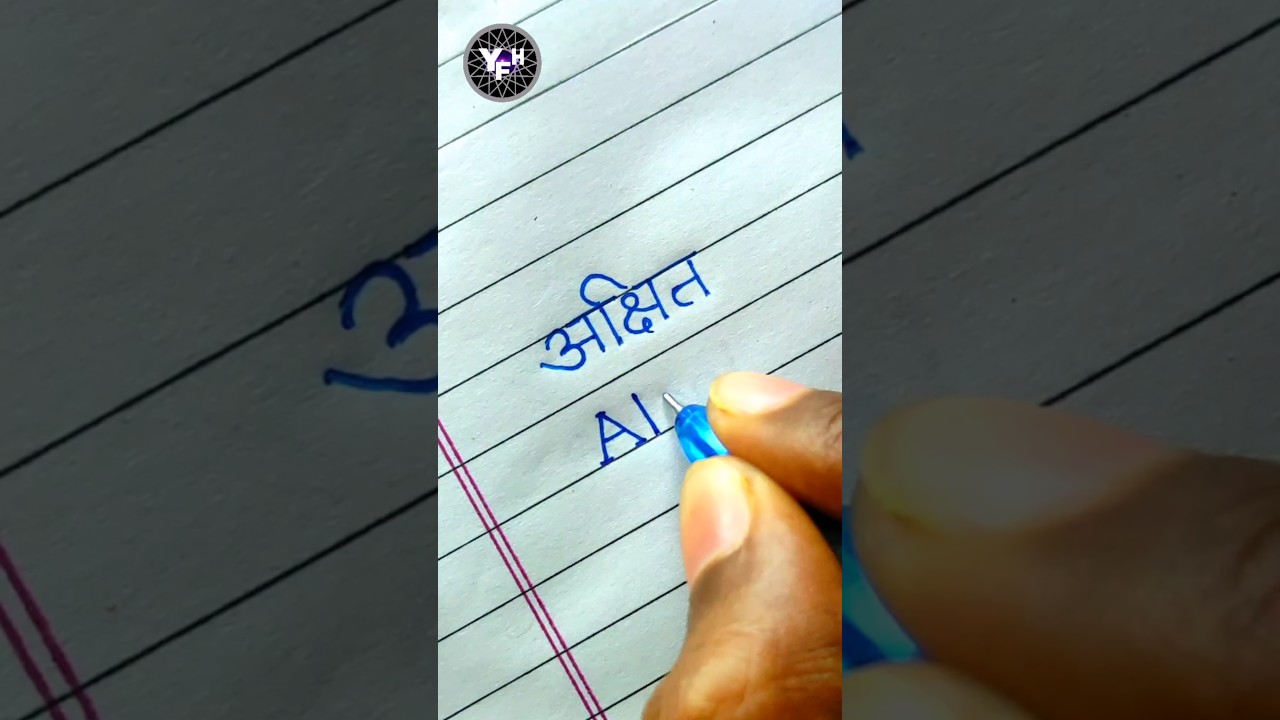 YFH
अक्षित
Al